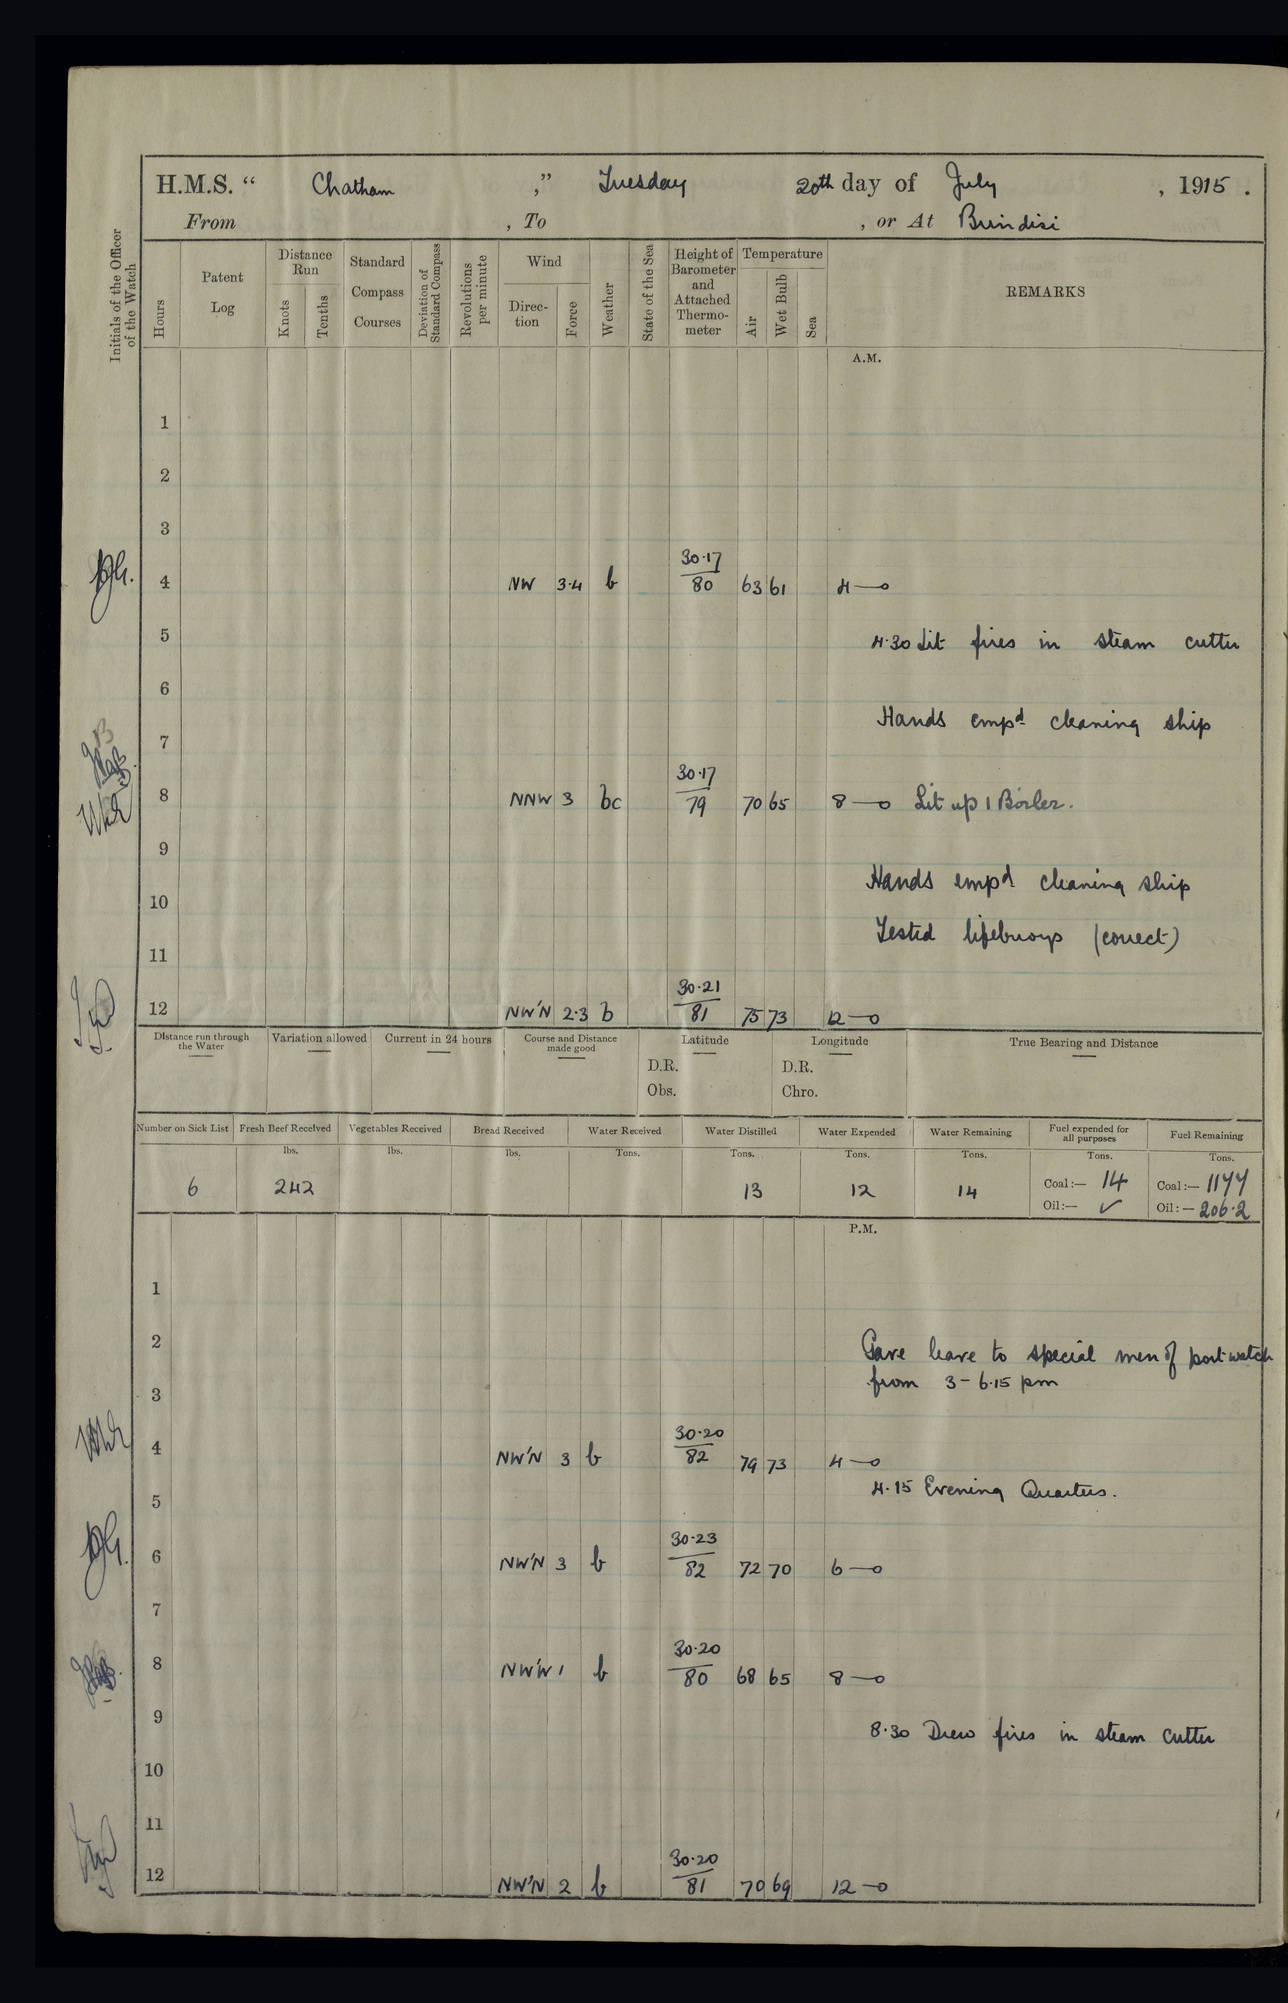 H.M.S. “ Chatham ,” Tuesday 20th day of July , 1915 .
From , To , or At Brindisi
Initials of the Officer of the Watch
Hours
Patent Log
Distance Run
Knots
Tenths
Standard Compass Courses
Deviation of Standard Compass
Revolutions per minute
Wind
Direc-tion
Force
Weather
State of the Sea
Height of Barometer and Attached Thermo-meter
Temperature
Air
Wet Bulb
Sea
REMARKS
A.M.
1
2
3
4 NW 3·4 b 30·17 80 63 61 4—o
5 4·30 Lit fires in steam cutter
6
Hands empd cleaning ship
7
8 NNW 3 bc 30·17 79 70 65 8—o Lit up 1 Boiler.
9
Hands empd cleaning ship
10
Tested lifebuoys (correct)
11
12 NW'N 2·3 b 30·21 81 75 73 12—o
Distance run through the Water
Variation allowed
Current in 24 hours
Course and Distance made good
Latitude
D.R.
Obs.
Longitude
D.R.
Chro.
True Bearing and Distance
Number on Sick List
6
Fresh Beef Received
lbs.
242
Vegetables Received
lbs.
Bread Received
lbs.
Water Received
Tons.
Water Distilled
Tons.
13
Water Expended
Tons.
12
Water Remaining
Tons.
14
Fuel expended for all purposes
Tons.
Coal:— 14
Oil:— ✓
Fuel Remaining
Tons.
Coal:— 1177
Oil:— 206·2
P.M.
1
2
Gave leave to special men of port watch
from 3 - 6·15 pm
3
4 NW'N 3 b 30·20 82 79 73 4—o
4·15 Evening Quarters.
5
6 NW'N 3 b 30·23 82 72 70 6—o
7
8 NW'W 1 b 30·20 80 68 65 8—o
9 8·30 Drew fires in steam cutter
10
11
12 NW'N 2 b 30·20 81 70 69 12—o